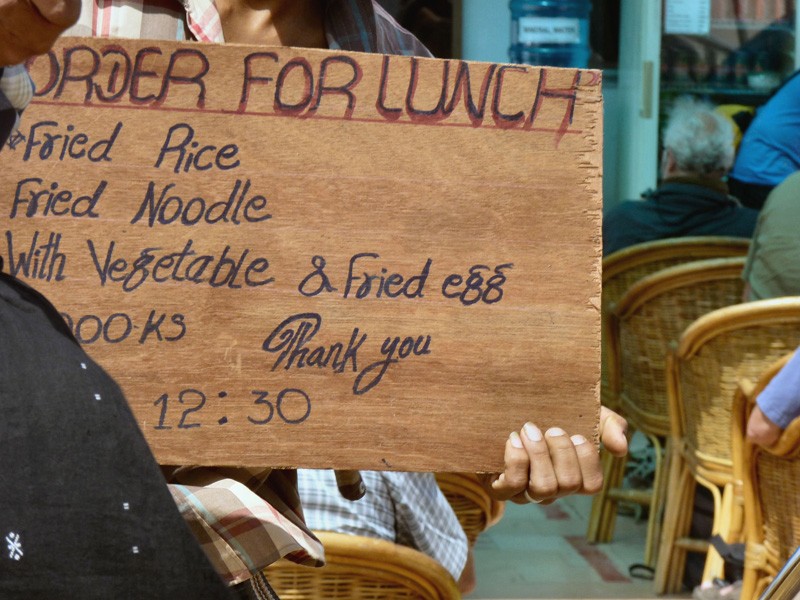 ORDER FOR LUNCH
Fried Rice
Fried Noodle
With Vegetable & Fried egg
000.KS Thank you
12:30
MINERAL WATER